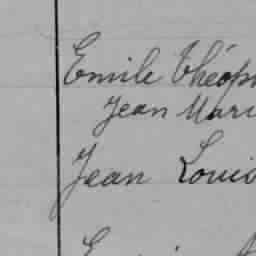 Emile Théop
Jean Mari
Jean Louis